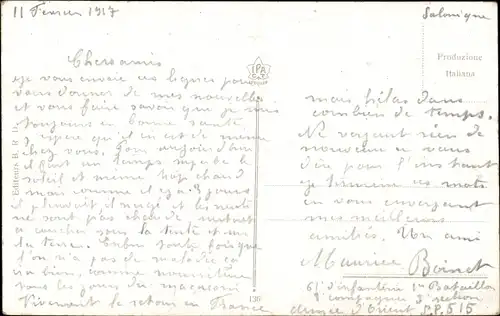 11 Fevrier 1917
Salonique
Produzione
Italiana
Editeurs B. R. D.
136
Chers amis
je vous envoie ces lignes pour
vous donner de mes nouvelles
et vous faire savoir que je suis
toujours en bonne santé
J'espere qu'il en est de meme
chez vous. Pour aujourd'hui
il fait un temps superbe le
soleil et meme trop chaud
mais comme il y a 8 jours
il pleuvait il neige et les nuits
ne sont pas chaudes surtout
a coucher sous la tente et sur
la terre. Enfin toute fois que
l'on n'a pas de maladie ca
va bien, comme nourriture
tous les jours du macaroni
Vivement le retour en France
mais hélas dans
combien de temps.
Ne voyant rien de
nouveau a vous
dire pour l'instant
je termine ces mots
en vous envoyant
mes meilleurs
amitiés. Un ami
Maurice
Boinet
d'infanterie 1er Bataillon
compagnie 3e section
armée d'Orient S.P. 515